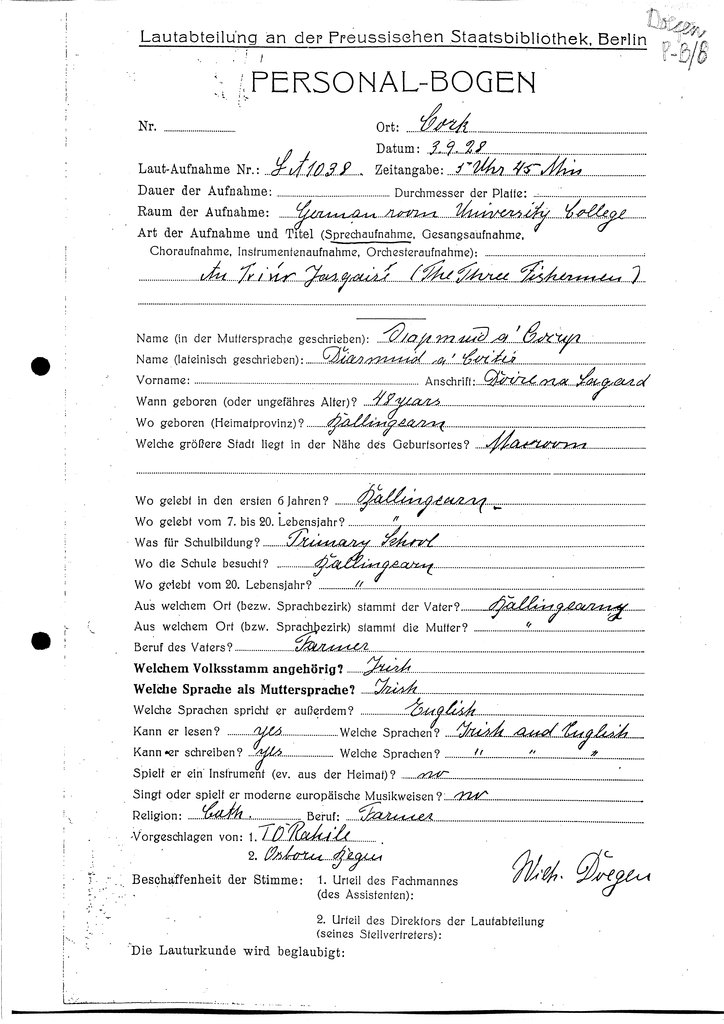 Doegen
P-B/B
Lautabteilung an der Preussischen Staatsbibliothek, Berlin
PERSONAL-BOGEN
Nr. Ort: Cork
Datum: 3.9.28
Laut-Aufnahme Nr.: LA 1038. Zeitangabe: 5 Uhr 45 Min
Dauer der Aufnahme: Durchmesser der Platte:
Raum der Aufnahme: German room University College
Art der Aufnahme und Titel (Sprechaufnahme, Gesangsaufnahme,
Choraufnahme, Instrumentenaufnahme, Orchesteraufnahme):
An Triúr Jasgairí (The Three Fishermen)
Name (in der Muttersprache geschrieben):
Name (lateinisch geschrieben): Diarmuid
Vorname: Anschrift: Doire na Sagard
Wann geboren (oder ungefähres Alter)? 48 years
Wo geboren (Heimatprovinz)? Ballingearn
Welche größere Stadt liegt in der Nähe des Geburtsortes? Macroom
Wo gelebt in den ersten 6 Jahren? Ballingearn
Wo gelebt vom 7. bis 20. Lebensjahr? "
Was für Schulbildung? Primary School
Wo die Schule besucht? Ballingearn
Wo gelebt vom 20. Lebensjahr? "
Aus welchem Ort (bezw. Sprachbezirk) stammt der Vater? Ballingearny
Aus welchem Ort (bezw. Sprachbezirk) stammt die Mutter? "
Beruf des Vaters? Farmer
Welchem Volksstamm angehörig? Irish
Welche Sprache als Muttersprache? Irish
Welche Sprachen spricht er außerdem? English
Kann er lesen? yes Welche Sprachen? Irish and English
Kann er schreiben? yes Welche Sprachen? " " "
Spielt er ein Instrument (ev. aus der Heimat)? no
Singt oder spielt er moderne europäische Musikweisen? no
Religion: Cath. Beruf: Farmer
Vorgeschlagen von: 1. T O'Rahile
2. Osborn Bergin
Beschaffenheit der Stimme: 1. Urteil des Fachmannes
(des Assistenten):
Wilh. Doegen
2. Urteil des Direktors der Lautabteilung
(seines Stellvertreters):
Die Lauturkunde wird beglaubigt: